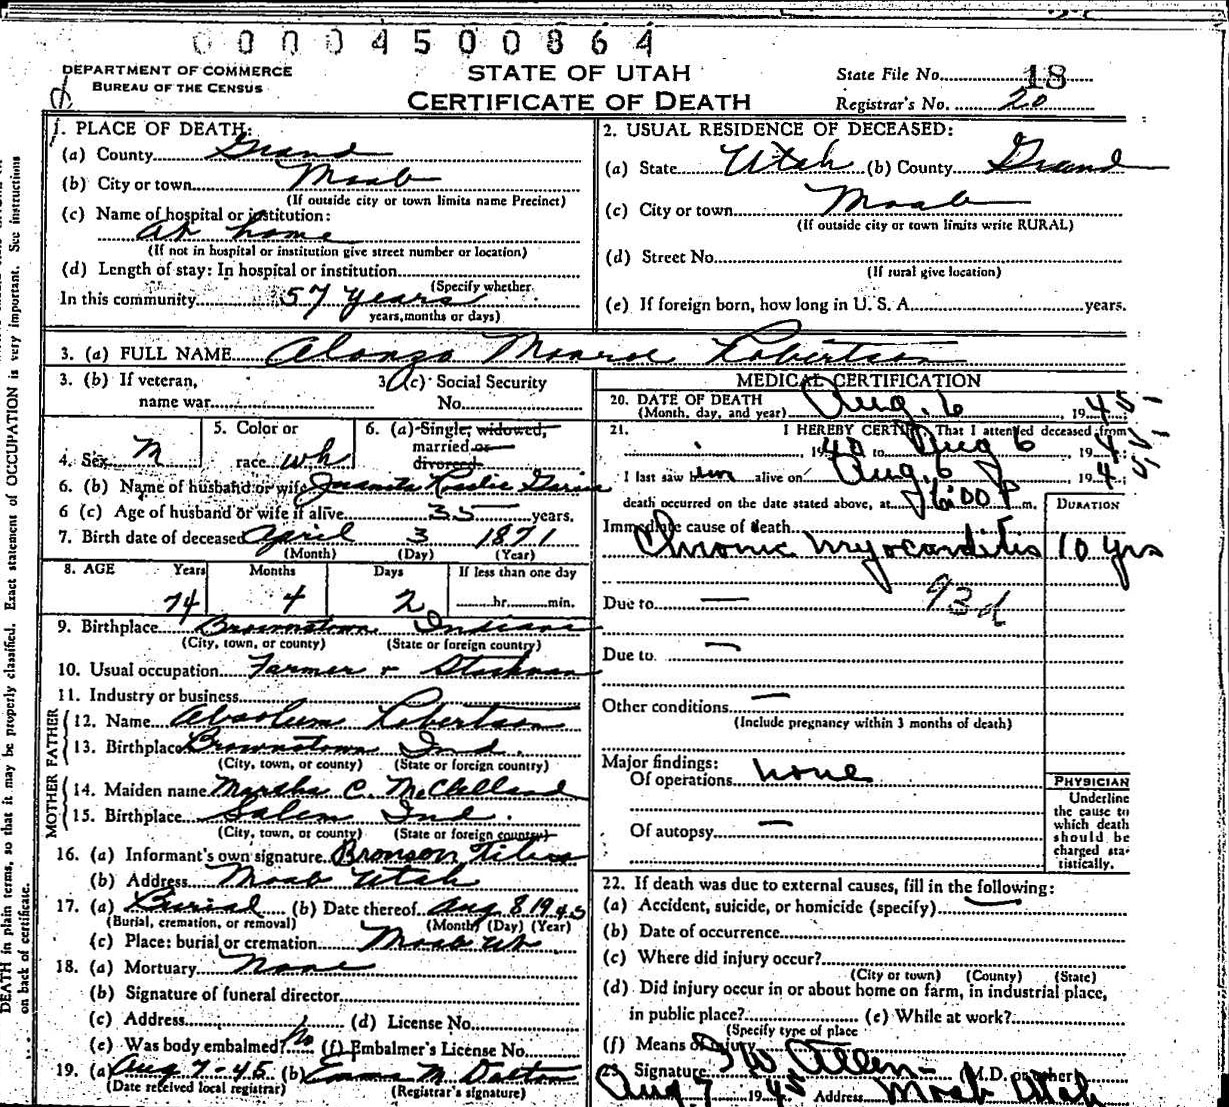 00004500864
DEPARTMENT OF COMMERCE
BUREAU OF THE CENSUS
STATE OF UTAH
CERTIFICATE OF DEATH
State File No. 18
Registrar's No. 20
1. PLACE OF DEATH:
(a) County Grand
(b) City or town Moab
(If outside city or town limits name Precinct)
(c) Name of hospital or institution:
At home
(If not in hospital or institution give street number or location)
(d) Length of stay: In hospital or institution
(Specify whether
In this community 57 years
years, months or days)
2. USUAL RESIDENCE OF DECEASED:
(a) State Utah (b) County Grand
(c) City or town Moab
(If outside city or town limits write RURAL)
(d) Street No.
(If rural give location)
(e) If foreign born, how long in U. S. A. years.
3. (a) FULL NAME Alonzo Monroe Robertson
3. (b) If veteran,
name war
3 (c) Social Security
No.
4. Sex M
5. Color or
race wh
6. (a) Single, widowed,
married or
divorced
6. (b) Name of husband or wife Juanita
6 (c) Age of husband or wife if alive 35 years.
7. Birth date of deceased April 3 1871
(Month) (Day) (Year)
8. AGE Years Months Days If less than one day
74 4 2 hr. min.
9. Birthplace Brownstown Indiana
(City, town, or county) (State or foreign country)
10. Usual occupation Farmer & Stockman
11. Industry or business
FATHER
12. Name Absolum Robertson
13. Birthplace Brownstown Ind.
(City, town, or county) (State or foreign country)
MOTHER
14. Maiden name Martha C. McClelland
15. Birthplace Salem Ind.
(City, town, or county) (State or foreign country)
16. (a) Informant's own signature Bronson
(b) Address Moab Utah
17. (a) Burial (b) Date thereof Aug 8 1945
(Burial, cremation, or removal) (Month) (Day) (Year)
(c) Place: burial or cremation Moab Ut
18. (a) Mortuary None
(b) Signature of funeral director
(c) Address (d) License No.
(e) Was body embalmed? No (f) Embalmer's License No.
19. (a) Aug 7-45 (b) Emma M. Dalton
(Date received local registrar) (Registrar's signature)
MEDICAL CERTIFICATION
20. DATE OF DEATH
(Month, day, and year) Aug. 6, 1945
21. I HEREBY CERTIFY That I attended deceased from
1940 to Aug 6, 1945
I last saw him alive on Aug. 6, 1945
death occurred on the date stated above, at 6:00 P m.
DURATION
Immediate cause of death
Chronic myocarditis 10 yrs
93d
Due to —
Due to —
Other conditions —
(Include pregnancy within 3 months of death)
Major findings:
Of operations none
Of autopsy —
PHYSICIAN
Underline
the cause to
which death
should be
charged sta-
tistically.
22. If death was due to external causes, fill in the following:
(a) Accident, suicide, or homicide (specify) —
(b) Date of occurrence
(c) Where did injury occur?
(City or town) (County) (State)
(d) Did injury occur in or about home on farm, in industrial place,
in public place? (e) While at work?
(Specify type of place
(f) Means of injury
23. Signature I W Allen (M.D. or other)
Aug 7 1945 Address Moab Utah
DEATH in plain terms, so that it may be properly classified. Exact statement of OCCUPATION is very important. See instructions
on back of certificate.